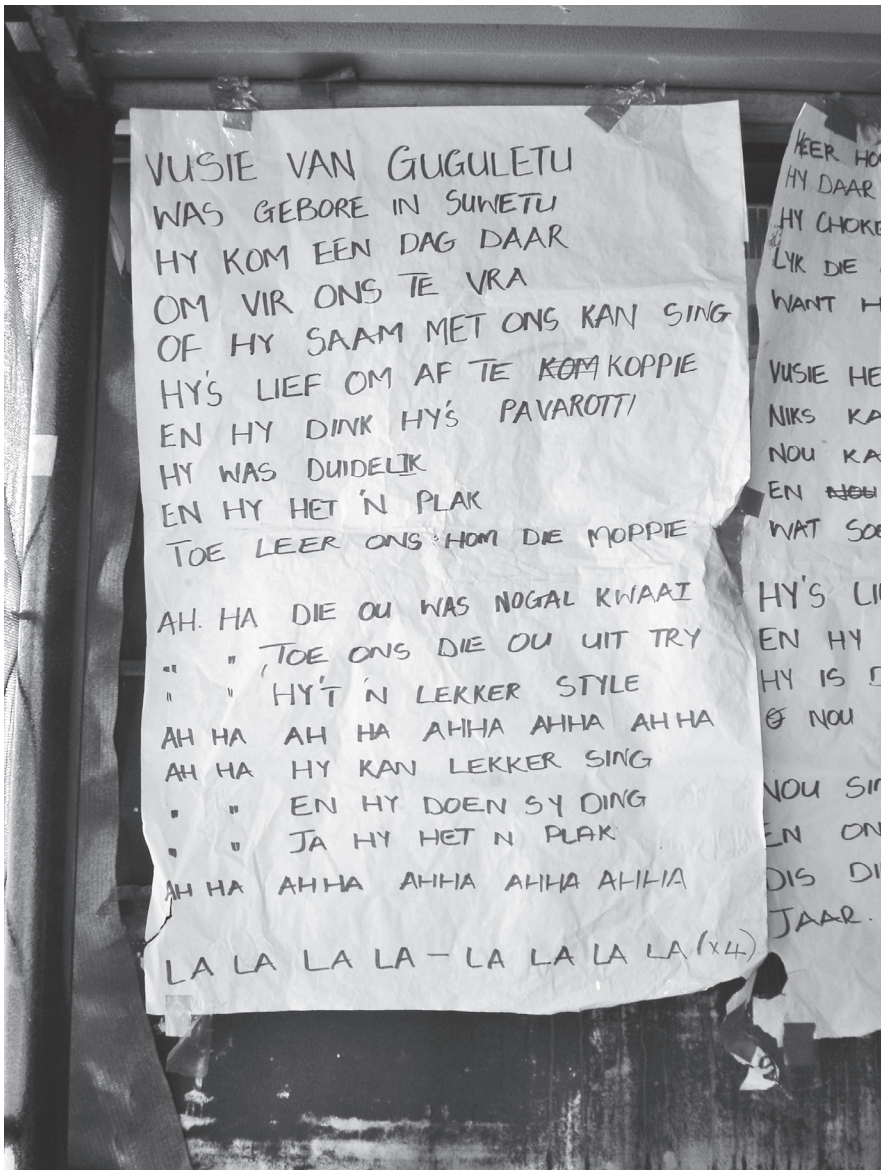 VUSIE VAN GUGULETU
WAS GEBORE IN SUWETU
HY KOM EEN DAG DAAR
OM VIR ONS TE VRA
OF HY SAAM MET ONS KAN SING
HY'S LIEF OM AF TE KOM KOPPIE
EN HY DINK HY'S PAVAROTTI
HY WAS DUIDELIK
EN HY HET 'N PLAK
TOE LEER ONS HOM DIE MOPPIE
AH. HA DIE OU WAS NOGAL KWAAI
" " TOE ONS DIE OU UIT TRY
" " HY'T 'N LEKKER STYLE
AH HA AH HA AHHA AHHA AHHA
AH HA HY KAN LEKKER SING
" " EN HY DOEN SY DING
" " JA HY HET N PLAK
AH HA AHHA AHHA AHHA AHHA
LA LA LA LA - LA LA LA LA (x4)
HEER
HY DAAR
HY CHOKE
LYK DIE
WANT H
VUSIE HE
NIKS KA
NOU KA
EN NOU
WAT SOE
HY'S LI
EN HY
HY IS D
NOU
NOU SIN
EN ON
DIS DI
JAAR.